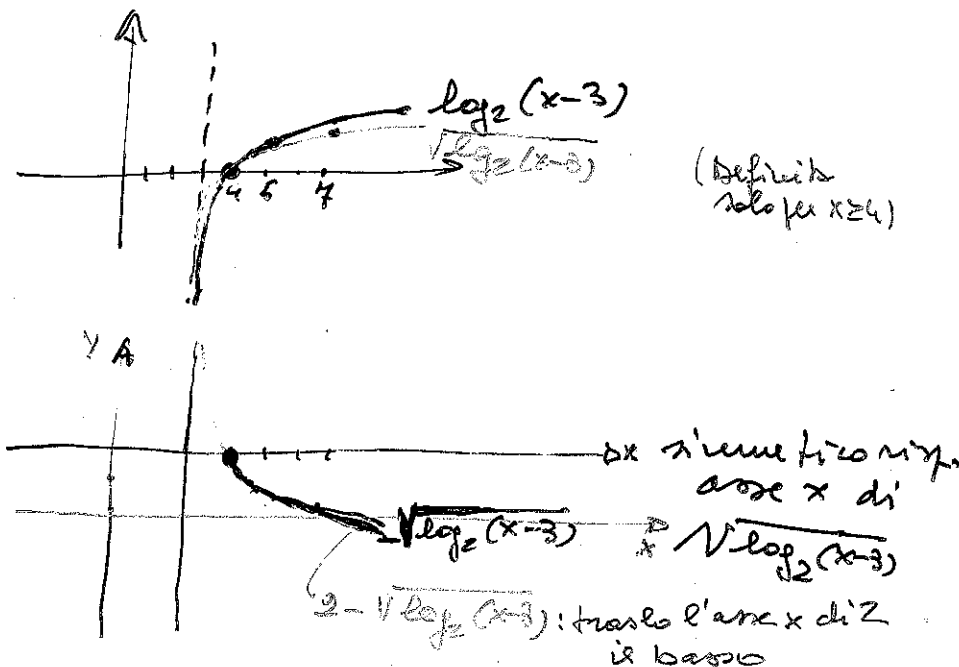 log₂(x-3)
√log₂(x-3)
4 5 7
(Definita
solo per x≥4)
y
x simmetrico risp.
asse x di
-√log₂(x-3)
x √log₂(x-3)
2-√log₂(x-3): traslo l'asse x di 2
il basso